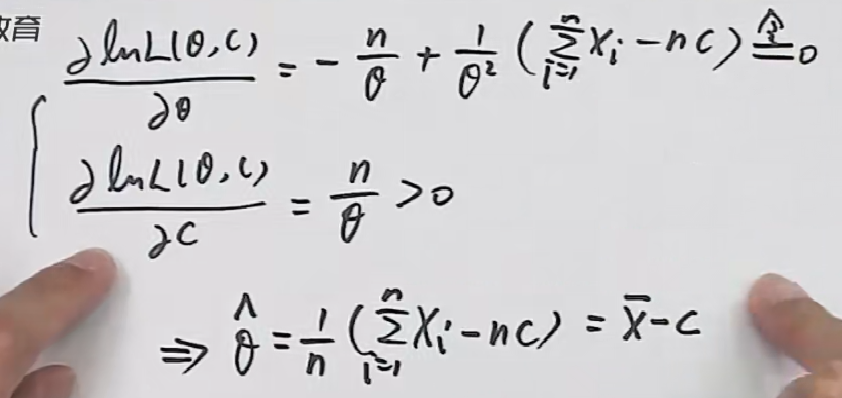 教育
∂lnL(θ,c)/∂θ = - n/θ + 1/θ² (∑_{i=1}^{n} x_i - nc) ≜ 0
∂lnL(θ,c)/∂c = n/θ > 0
⇒ θ̂ = 1/n (∑_{i=1}^{n} X_i - nc) = x̄ - c